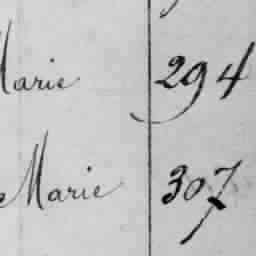 Marie 294
Marie 307